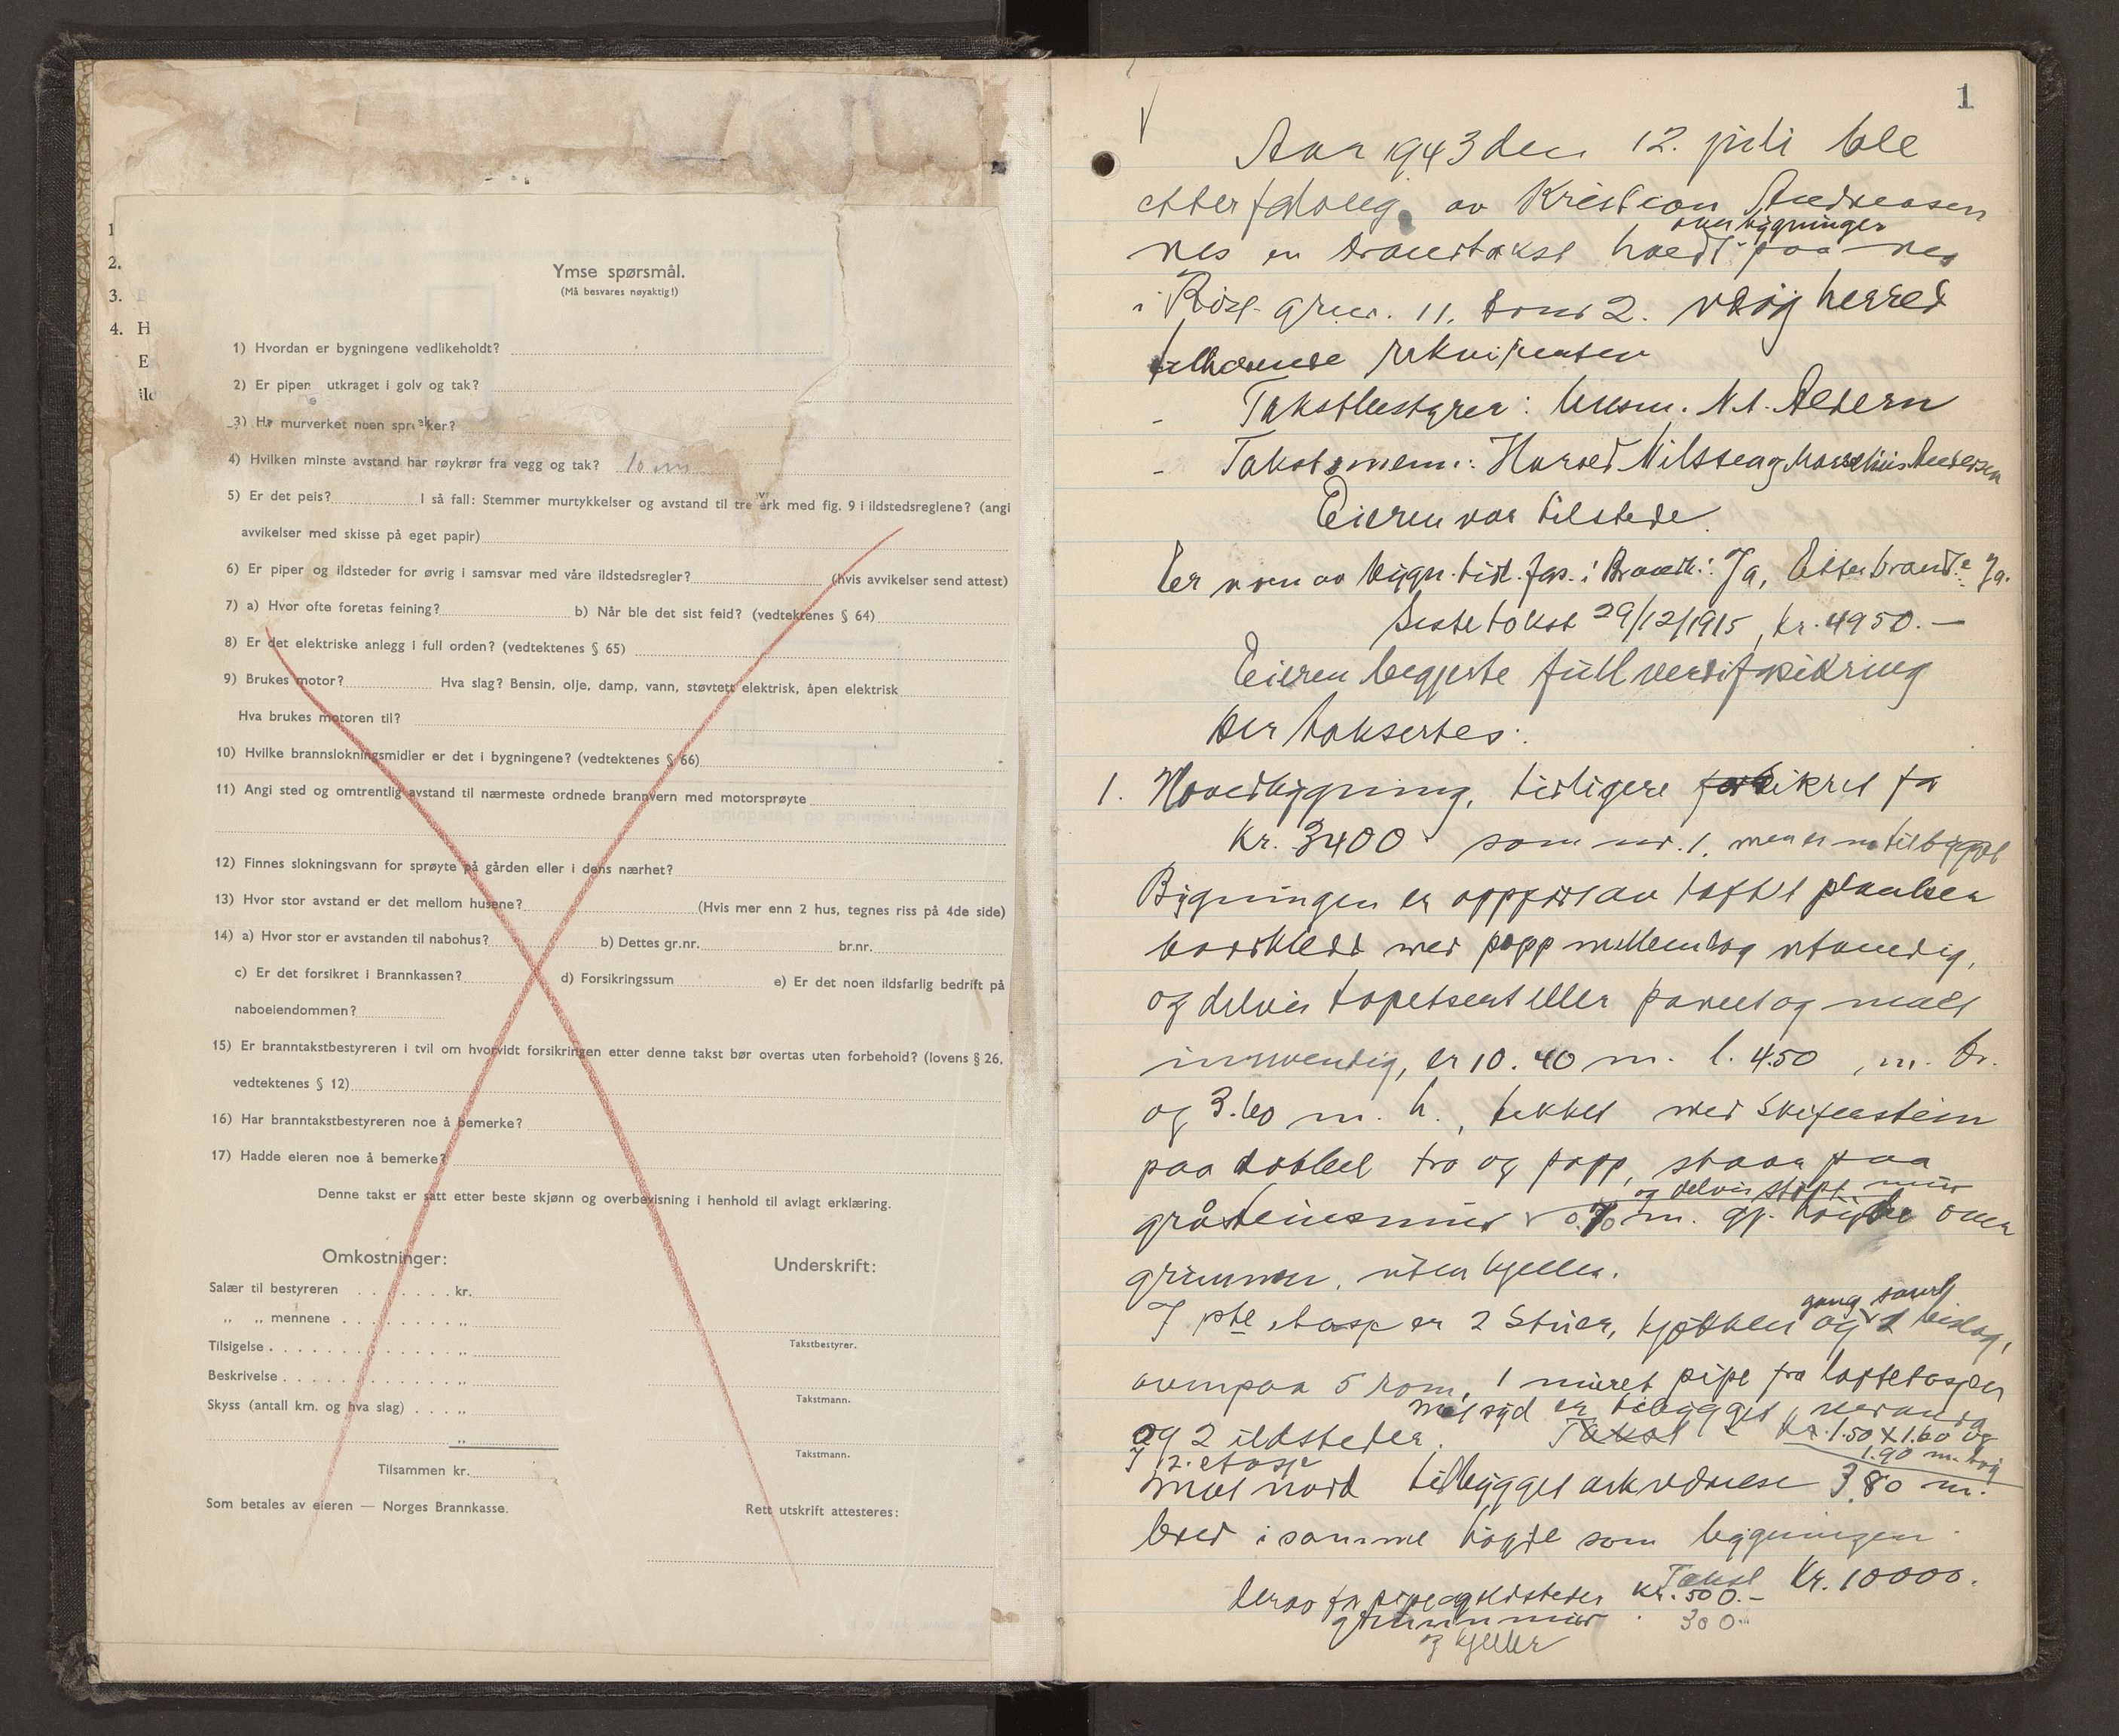 1
2.
3.
4. H
E
ild
Ymse spørsmål.
(Må besvares nøyaktig!)
1) Hvordan er bygningene vedlikeholdt?
2) Er pipen utkraget i golv og tak?
3) Har murverket noen sprekker?
4) Hvilken minste avstand har røykrør fra vegg og tak? 10 cm
5) Er det peis? I så fall: Stemmer murtykkelser og avstand til treverk med fig. 9 i ildstedsreglene? (angi
avvikelser med skisse på eget papir)
6) Er piper og ildsteder for øvrig i samsvar med våre ildstedsregler? (hvis avvikelser send attest)
7) a) Hvor ofte foretas feining? b) Når ble det sist feid? (vedtektenes § 64)
8) Er det elektriske anlegg i full orden? (vedtektenes § 65)
9) Brukes motor? Hva slag? Bensin, olje, damp, vann, støvtett elektrisk, åpen elektrisk
Hva brukes motoren til?
10) Hvilke brannslokningsmidler er det i bygningene? (vedtektenes § 66)
11) Angi sted og omtrentlig avstand til nærmeste ordnede brannvern med motorsprøyte
12) Finnes slokningsvann for sprøyte på gården eller i dens nærhet?
13) Hvor stor avstand er det mellom husene? (Hvis mer enn 2 hus, tegnes riss på 4de side)
14) a) Hvor stor er avstanden til nabohus? b) Dettes gr.nr. br.nr.
c) Er det forsikret i Brannkassen? d) Forsikringssum e) Er det noen ildsfarlig bedrift på
naboeiendommen?
15) Er branntakstbestyreren i tvil om hvorvidt forsikringen etter denne takst bør overtas uten forbehold? (lovens § 26,
vedtektenes § 12)
16) Har branntakstbestyreren noe å bemerke?
17) Hadde eieren noe å bemerke?
Denne takst er satt etter beste skjønn og overbevisning i henhold til avlagt erklæring.
Omkostninger:
Underskrift:
Salær til bestyreren . . . . . . . kr.
„ „ mennene . . . . . . . . . „
Takstbestyrer.
Tilsigelse . . . . . . . . . . . . . . „
Beskrivelse . . . . . . . . . . . . . „
Takstmann.
Skyss (antall km. og hva slag) . . . . „
„
Takstmann.
Tilsammen kr.
Som betales av eieren — Norges Brannkasse.
Rett utskrift attesteres:
1
Aar 1943 den 12. juli ble
etter forlang av Kristian Andreasen
over bygninger
nes en branntakst holdt paa nes
i grn. 11. brnr 2. herred
tilhørende rekvirenten
Takstbestyrer: lensm. N. A.
Takstmenn: Harald Nilssen og Andersen
Eieren var tilstede.
Er noen av bygn. tidl. fors. i Brandk.: Ja, Etter brand: Ja.
Siste takst 29/12/1915, kr. 4950.—
Eieren begjerte full verdiforsikring
Der taksertes:
1. Hovedbygning, tidligere forsikret for
Kr. 3400 som nr. 1, men er nu tilbygget
Bygningen er oppført av laftet planker
bordkledd med papp mellemlag utvendig,
og delvis tapetsert eller panel og malt
innvendig, er 10.40 m. l. 4.50 m. br.
og 3.60 m. h., tekket med Skiferstein
paa dobbel tro og papp, staar paa
og delvis støpt mur
gråsteinsmur 0.70 m. gj. høyde over
grunnen, uten kjeller.
gang samt
I 1ste etasje er 2 Stuer, kjøkken og 1 bislag,
ovenpaa 5 rom, 1 muret pipe fra
Mot syd er tilbygget veranda
og 2 ildsteder. Takst Kr. 1.50 x 1.60 og
1.90 m. høy
I 2. etasje
Mot nord tilbygget 3.80 m.
bred i samme høyde som bygningen
Takst Kr. 10000.
Derav for pipe og ildsteder kr. 500.—
grunnmur 300
og kjeller